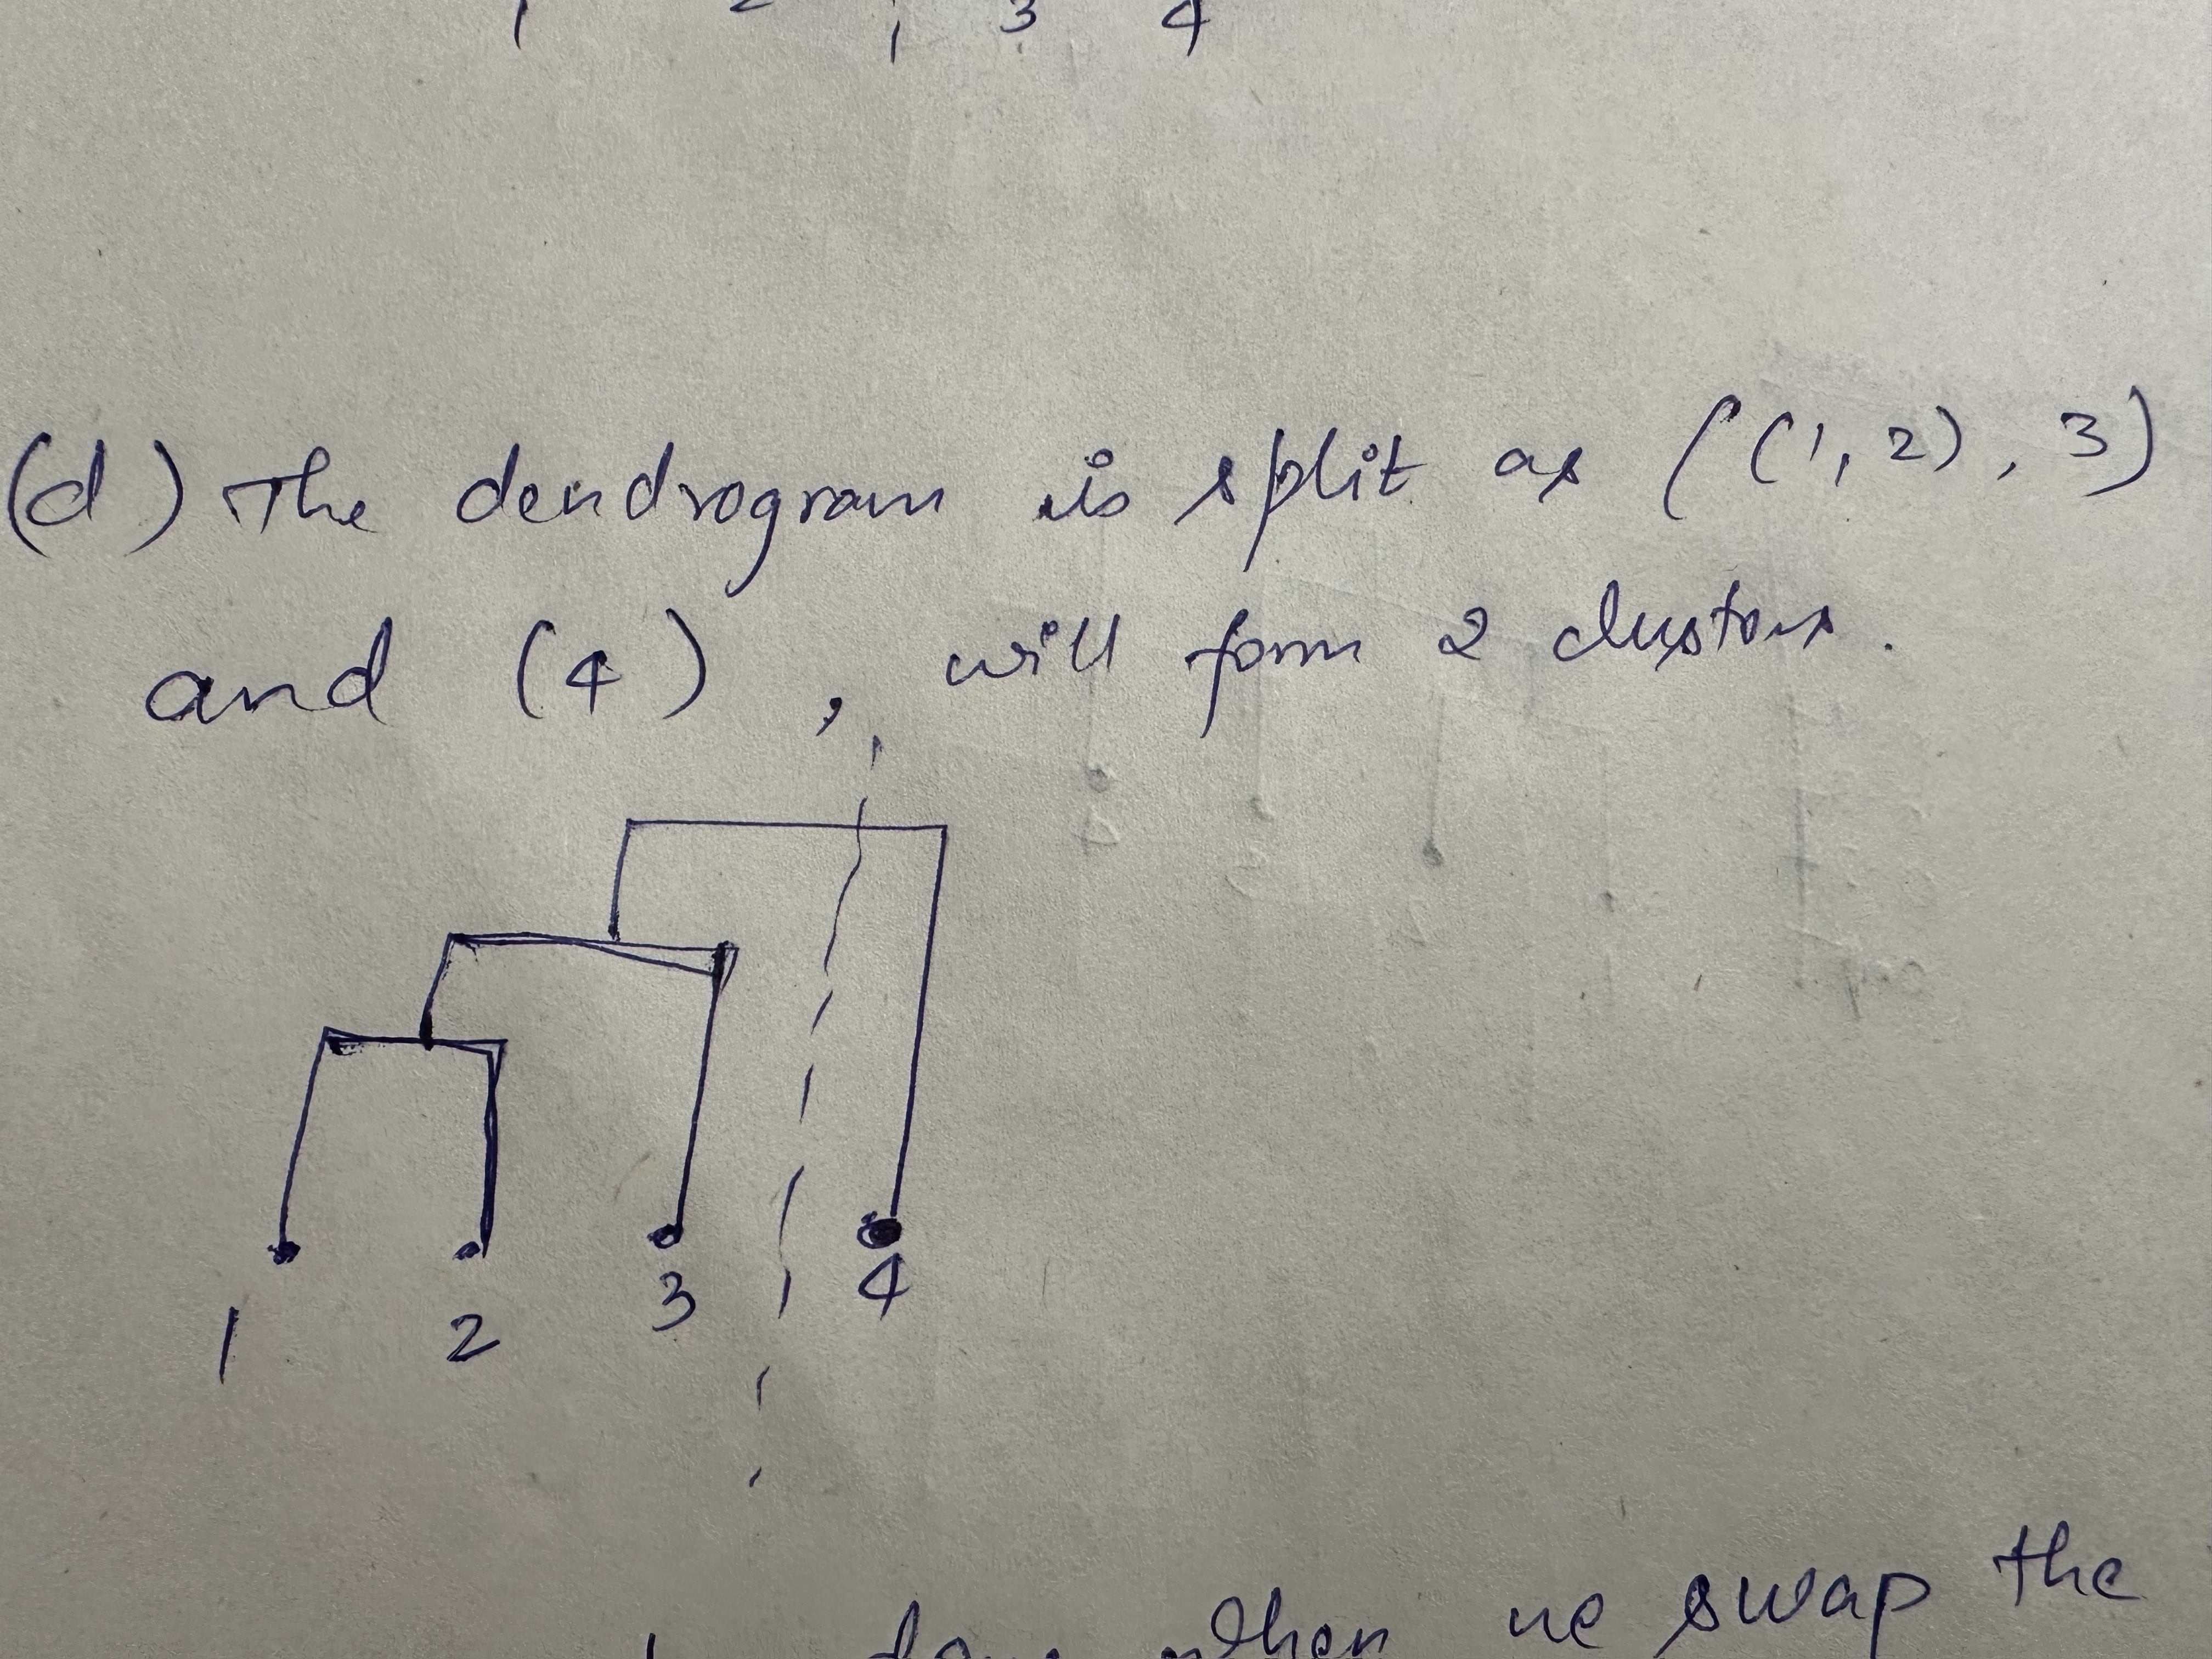 1 2 3 4
(d) The dendrogram is split as ((1,2), 3)
and (4), will form 2 clusters.
1 2 3 4
when we swap the